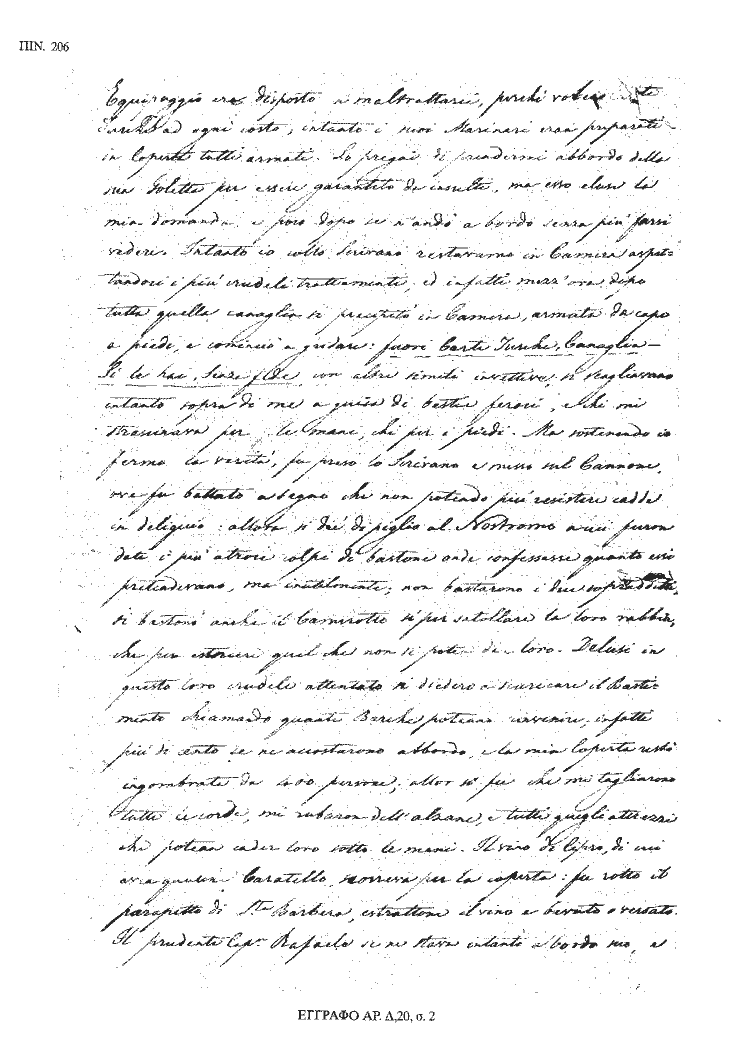 ΠΙΝ. 206
Equipaggio era disposto a maltrattarci, perchè voleva
Turche ad ogni costo, intanto i suoi Marinari eran preparati
in Coperta tutti armati. Lo pregai di prendermi abbordo della
sua Goletta per essere garantito da insulti, ma esso eluse la
mia domanda, e poco dopo se n'andò a bordo senza più farsi
vedere. Intanto io collo Scrivano restavamo in Camera aspet-
tandoci i più crudeli trattamenti, ed infatti mezz'ora dopo
tutta quella canaglia si precipitò in Camera, armata da capo
a piedi, e cominciò a gridare: fuori Carte Turche, Canaglia –
Tu le hai, Senza fede, con altre simili invettive, si scagliavano
intanto sopra di me a guisa di bestie feroci, e chi mi
strascinava per le mani, chi per i piedi. Ma sostenendo io
fermo la verità, fu preso lo Scrivano e messo sul Cannone,
ove fu battuto a segno che non potendo più resistere cadde
in deliquio: allora si diè di piglio al Nostromo a cui furon
dati i più atroci colpi di bastone onde confessasse quanto essi
pretendevano, ma inutilmente; non bastarono i due sopraddetti,
si bastonò anche il Camerotto sì per satollare la loro rabbia,
che per estorcere quel che non si potea da loro. Delusi in
questo loro crudele attentato si diedero a scaricare il Basti-
mento chiamando quante Barche poteano rinvenire, infatti
più di cento se ne accostarono abbordo, e la mia Coperta restò
ingombrata da 400 persone; allor si fu che mi tagliarono
tutte le corde, mi rubaron dell'alzane, e tutti quegli attrezzi
che potean cader loro sotto le mani. Il vino di Cipro, di cui
avea qualche Caratello, scorreva per la coperta: fu rotto il
parapetto di S.ta Barbera, estrattone il vino e bevuto o versato.
Il prudente Cap.n Rafaele se ne stava intanto a bordo suo, e
ΕΓΓΡΑΦΟ ΑΡ. Δ,20, σ. 2